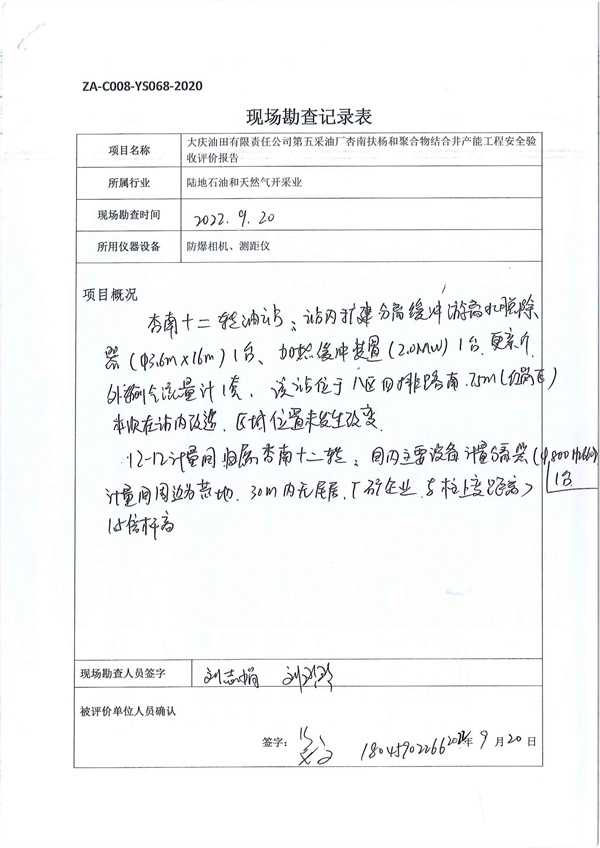 ZA-C008-YS068-2020
现场勘查记录表
项目名称
大庆油田有限责任公司第五采油厂杏南扶杨和聚合物结合井产能工程安全验
收评价报告
所属行业
陆地石油和天然气开采业
现场勘查时间
2022.9.20
所用仪器设备
防爆相机、测距仪
项目概况
杏南十二转油站：站内扩建分离缓冲游离水脱除
器（φ3.6m×16m）1台、加热缓冲装置（2.0MW）1台，更
外输气流量计1套，该站位于八区四排路南75m
本次在站内改造，区域位置未发生改变
12-12计量间归属杏南十二转：间内主要设备计量分离器
1台
计量间周边为荒地，30m内无居民、厂矿企业，与柱上变距离>
1.5倍杆高
现场勘查人员签字
刘志娟
被评价单位人员确认
签字：
18045902266
2022年9月20日